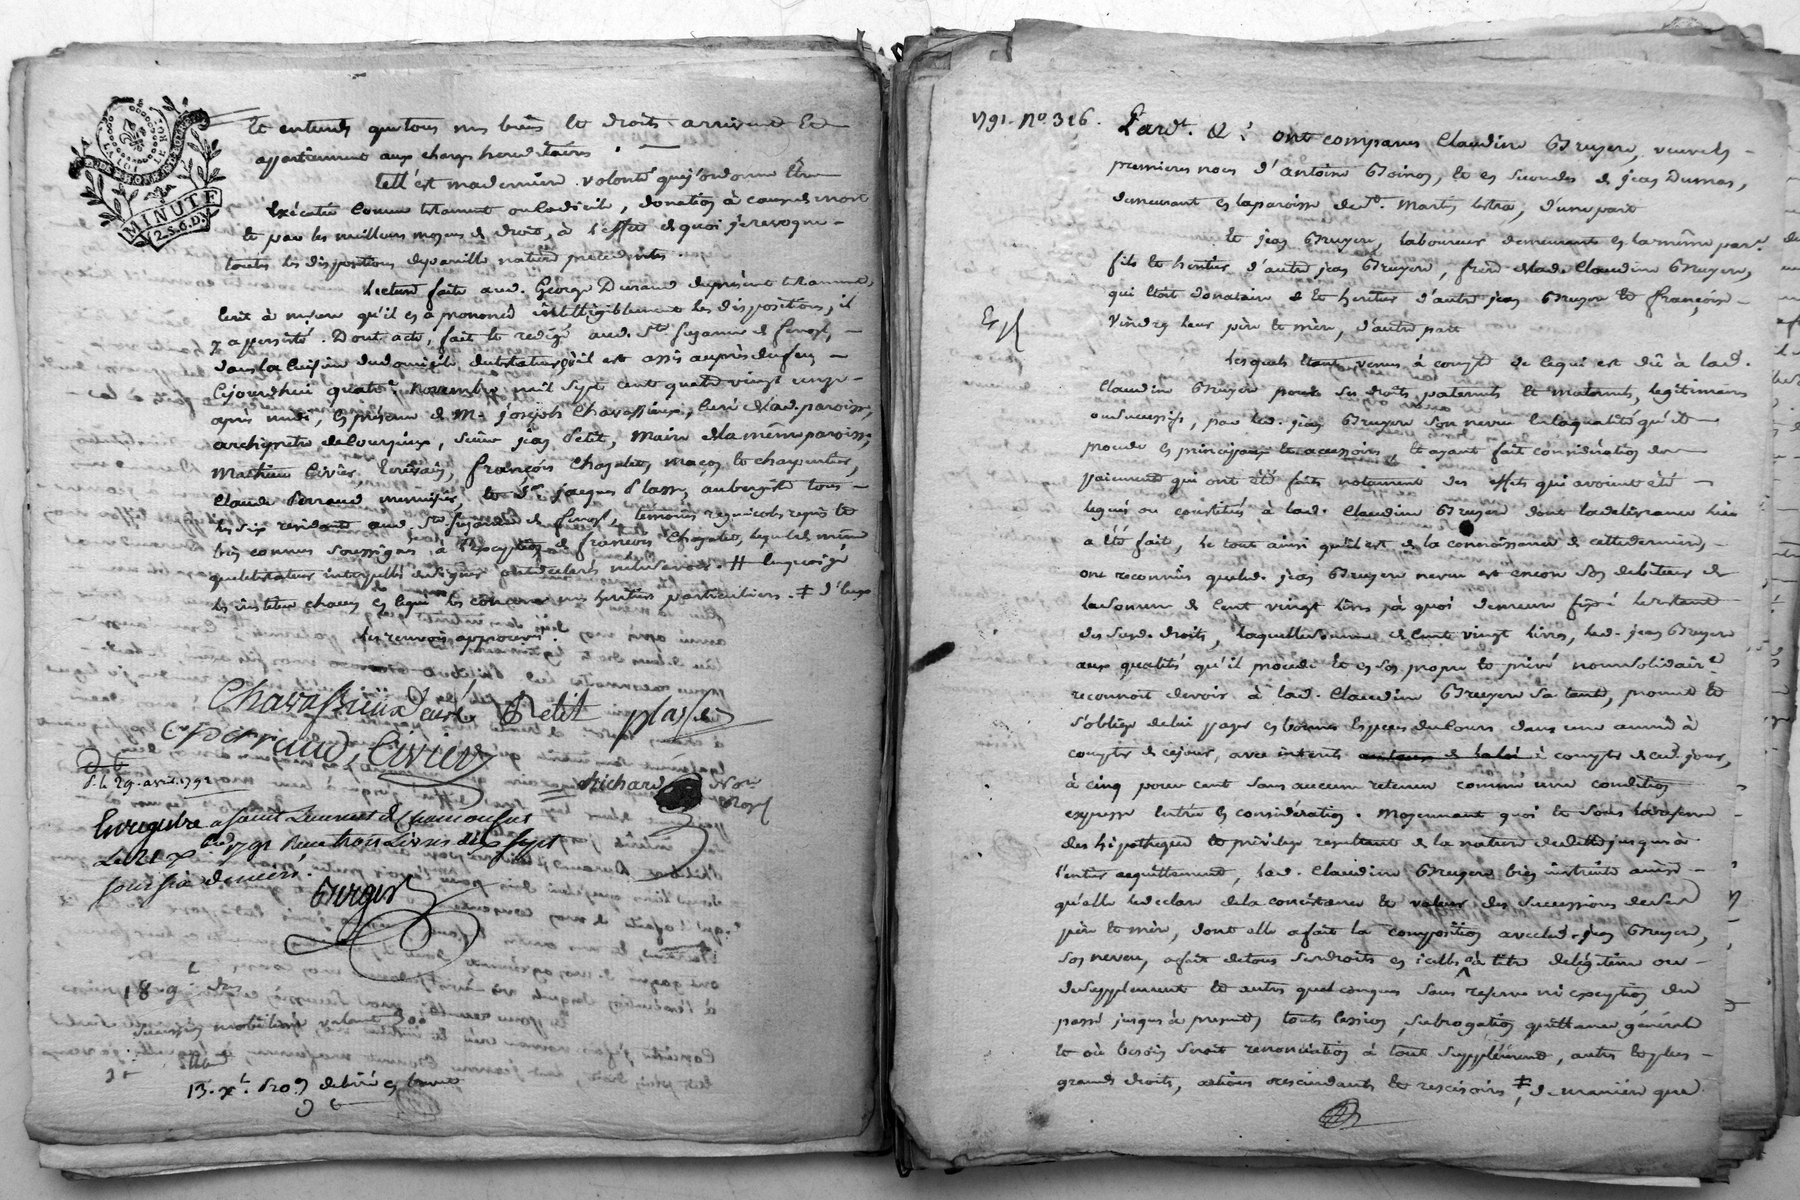 LA LOI LE ROI
MINUTE
2.S.6.D.
Et entends que tous mes biens et droits arrivent et
appartiennent aux charges hereditaires.
Telle est ma derniere volonté que j'ordonne être
executée comme testament ou codicile, donation à cause de mort
et par les meilleurs moyens de droit, à l'effet de quoi je revoque
toutes les dispositions de pareille nature precedentes.
Lecture faite aud. George Durand du présent testament,
écrit à mesure qu'il en a prononcé intelligiblement les dispositions, il
y a persisté. Dont acte, fait et redigé aud. St.
dans la cuisine du domicile du testateur où il est assis auprès du feu
cejourdhui quatre novembre mil sept cent quatre vingt onze
après midi, en présence de Mr. joseph Chavassieux, curé de lad. paroisse,
archiprêtre de courzieux, sieur jean Petit, Maire de la même paroisse,
Mathieu Civier, françois Chazalet, maçon et charpentier,
Claude Perraud menuisier, et Sr. jacques Plasse, aubergiste tous
les six residants aud. temoins regnicoles requis et
bien connus soussignés à l'exception de francois Chazalet, lequel de même
que le testateur interpellés de signer ont declaré ne le savoir. #
les instituer chacun en ce qui les concerne mes heritiers particuliers. ‡ d'eux
Les renvois approuvés.
Chavassieux curé Petit plasse
Cl perraud, Civier
D. le 29. avril 1792
Richard Nore
Royl
Enregistré a Saint Laurent de Chamousset
Le 1791 Reçu trois livres dix sept
sous six deniers.
Burgest
18 9
Succession mobiliere valant 300
13. xbre. 1809 delivré en brevet
1791. No. 326.
Pard. &c. ont comparu Claudine Bruyere, veuve en
premieres noces d'antoine Boiron, et en secondes de jean Dumas,
demeurant en la paroisse de St. Martin lestra, d'une part
Et jean Bruyere, laboureur demeurant en la même parse.
fils et heritier d'autre jean Bruyere, frere de lad. Claudine Bruyere,
qui étoit donataire et heritier d'autre jean Bruyere et françoise
Vindry leur père et mère, d'autre part
Expé
Lesquels étant venus à compte de ce qui est dû à lad.
Claudine Bruyere pour ses droits paternels et maternels, legitimaires
ou successifs, par led. jean Bruyere son neveu en la qualité qu'il
procede en principaux et accessoires, et ayant fait consideration des
paiements qui ont été faits notamment des effets qui avoient été
legués ou constitués à lad. Claudine Bruyere dont la delivrance lui
a été fait, le tout ainsi qu'il est de la connoissance de cette derniere,
ont reconnus que led. jean Bruyere neveu est encore son debiteur de
la somme de cent vingt livres, à quoi demeure fixé le restant
des susd. droits, laquelle somme de cent vingt livres, led. jean Bruyere
aux qualités qu'il procede et en son propre et privé nom solidaire
reconnoit devoir à lad. Claudine Bruyere sa tante, promet et
s'oblige de lui payer en bonnes especes du cours dans une année à
compter de cejour, avec interets au taux de la loi à compter de ced. jour,
à cinq pour cent sans aucune retenue comme une condition
expresse entre eux considération. Moyennant quoi et sous la reserve
des hipotheques et privilege resultant de la nature de dette jusques à
l'entier acquittement, lad. Claudine Bruyere bien instruite ainsi
qu'elle le declare de la consistance et valeur des successions de sesd
père et mère, dont elle a fait la composition avec led. jean Bruyere,
son neveu, a fait de tous ses droits en icelles à titre de legitime ou
de supplement et autres quelconques sans reserve ni exception du
passé jusques à present, toute cession, subrogation, quittance générale
et où besoin seroit renonciation à tout supplément, autres et plus
grands droits, actions rescindants et rescisoirs ‡, de maniere que